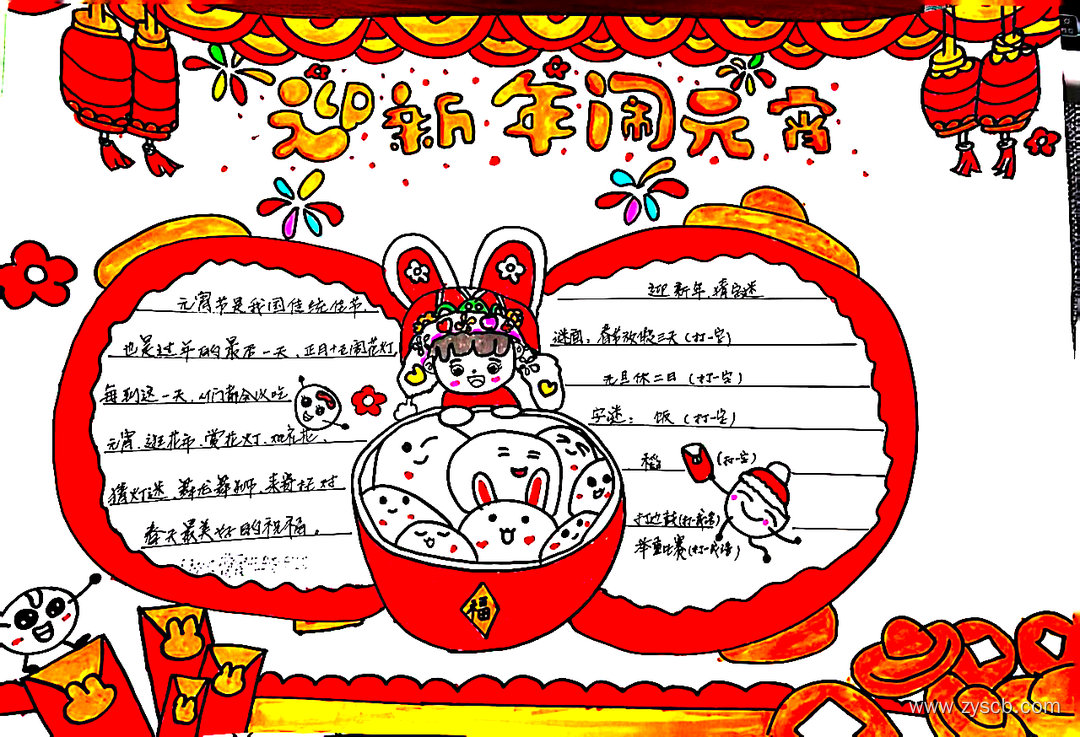 迎新年闹元宵
元宵节是我国传统佳节,
也是过年的最后一天、正月十五闹花灯,
每到这一天,人们都会以吃
元宵、逛花市、赏花灯、烟花、
猜灯谜、舞龙舞狮,来寄托对
春天最美好的祝福。
迎新年、猜字谜
谜面:春节放假三天(打一字)
元旦休二日(打一字)
字谜: 饭(打一字)
稻 (打一字)
打边鼓(打一成语)
举重比赛(打一成语)
福
www.zyscb.com